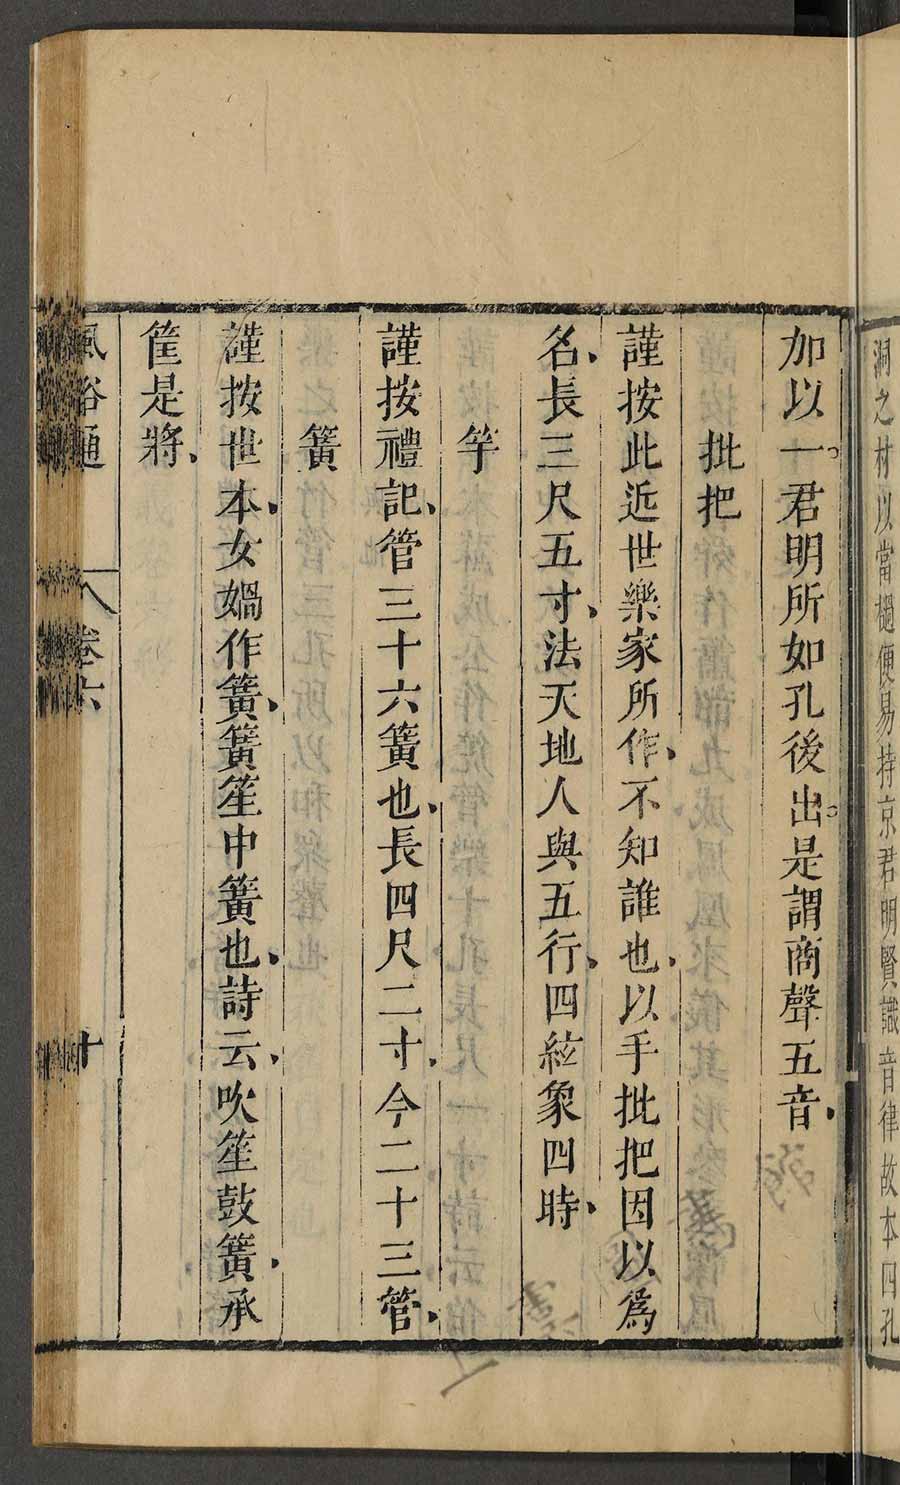 洞之材以當檛便易持京君明賢識音律故本四孔
加以一君明所如孔後出是謂商聲五音
批把
謹按此近世樂家所作不知誰也以手批把因以為
名長三尺五寸法天地人與五行四絃象四時
竽
謹按禮記管三十六簧也長四尺二寸今二十三管
簧
謹按世本女媧作簧簧笙中簧也詩云吹笙鼓簧承
筐是將
風俗通
卷六
十